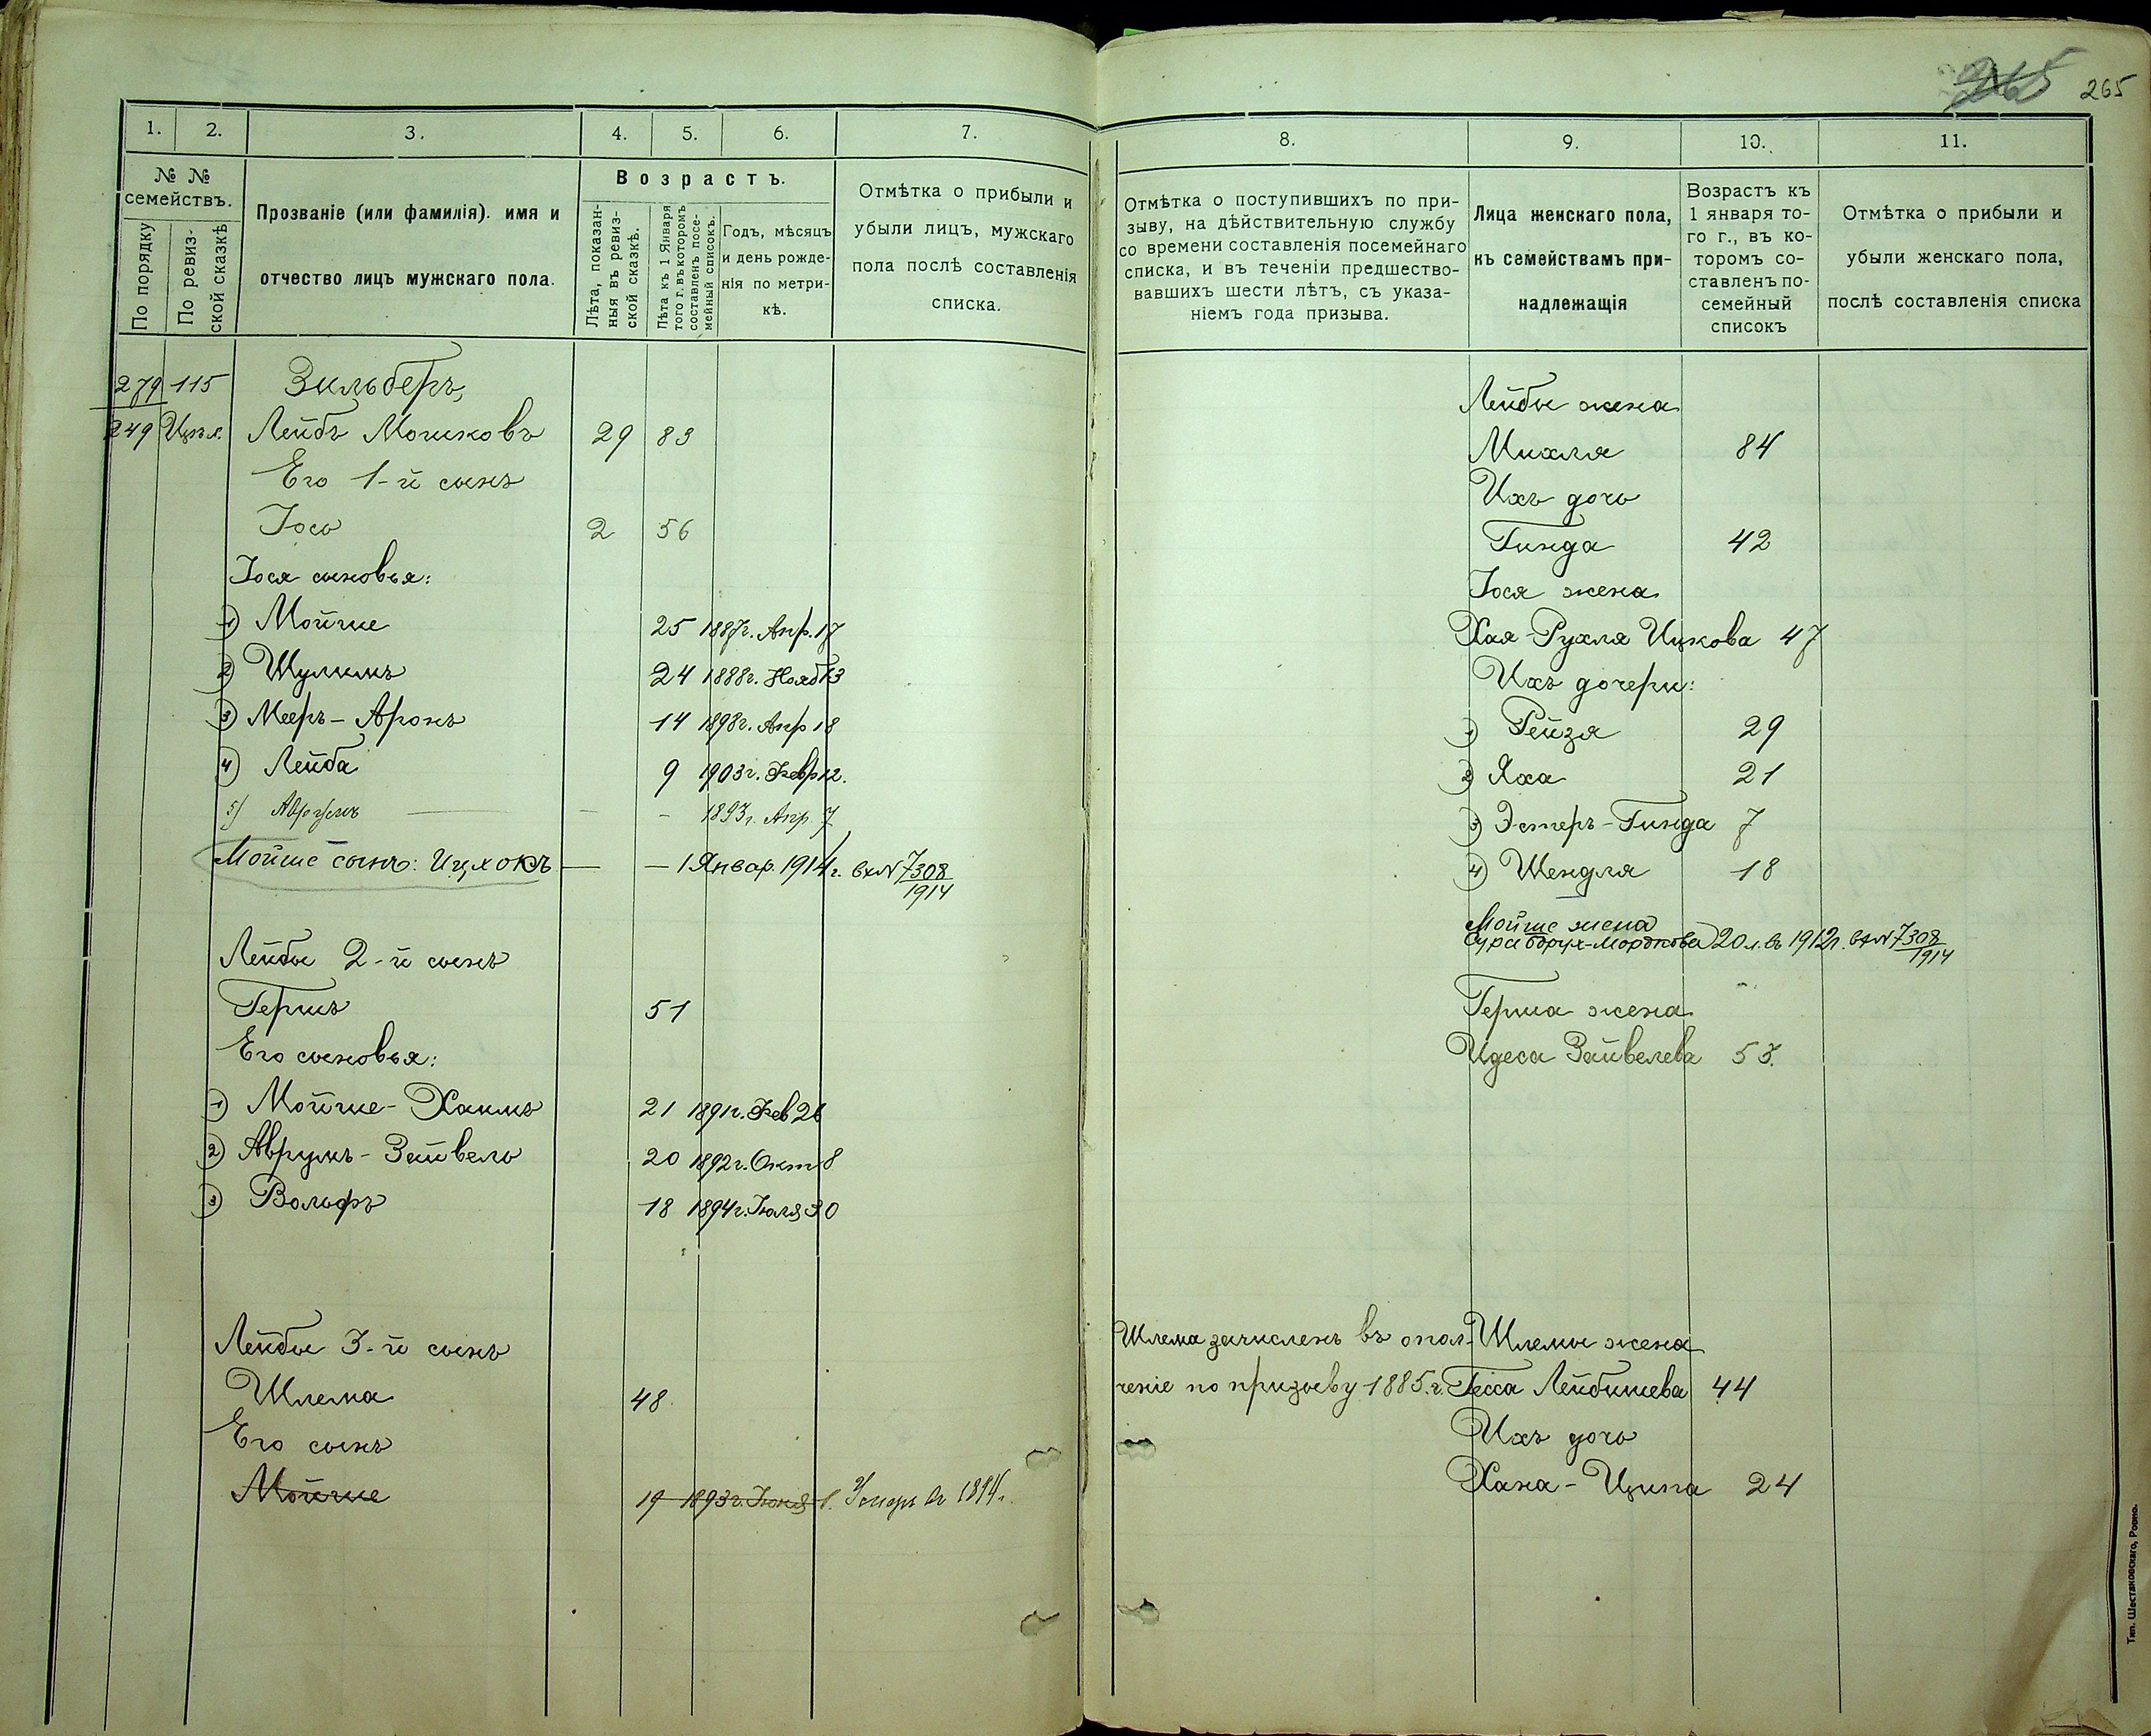 265 265
1. 2. 3. 4. 5. 6. 7.
№ № семействъ.
По порядку
По ревизской сказкѣ
Прозваніе (или фамилія). имя и
отчество лицъ мужскаго пола.
Возрастъ.
Лѣта, показан-
ныя въ ревиз-
ской сказкѣ.
Лѣта къ 1 Января
того г. въ которомъ
составленъ посе-
мейный списокъ.
Годъ, мѣсяцъ
и день рожде-
нія по метри-
кѣ.
Отмѣтка о прибыли и
убыли лицъ, мужскаго
пола послѣ составленія
списка.
279 115 Зильберъ,
249 Лейбъ Мошковъ 29 83
Его 1-й сынъ
Іось 2 56
Іося сыновья:
1) Мойше 25 1887г. Апр. 17
2) Шулимъ 24 1888г. Нояб 13
3) Мееръ-Аронъ 14 1898г. Апр 18
4) Лейба 9 1903г. Февр 12.
5) Аврумъ — — — 1893г. Апр. 7
Мойше сынъ: Ицхокъ — — 1 Январ. 1914г. вх № 7308/1914
Лейбы 2-й сынъ
Гершъ 51
Его сыновья:
1) Мойше-Хаимъ 21 1891г. Фев 26
2) Аврумъ-Зейвель 20 1892г. Окт 8
3) Вольфъ 18 1894г. Іюля 30
Лейбы 3-й сынъ
Шлема 48
Его сынъ
Мойше 19 1893г. Іюня 1. Умеръ въ 1894г.
8. 9. 10. 11.
Отмѣтка о поступившихъ по при-
зыву, на дѣйствительную службу
со времени составленія посемейнаго
списка, и въ теченіи предшество-
вавшихъ шести лѣтъ, съ указа-
ніемъ года призыва.
Лица женскаго пола,
къ семействамъ при-
надлежащія
Возрастъ къ
1 января то-
го г., въ ко-
торомъ со-
ставленъ по-
семейный
списокъ
Отмѣтка о прибыли и
убыли женскаго пола,
послѣ составленія списка
Лейбы жена
Михля 84
Ихъ дочь
Гинда 42
Іося жена
Хая-Рухля Ицкова 47
Ихъ дочери:
1) Рейзя 29
2) Яха 21
3) Эстеръ-Гинда 7
4) Шендля 18
Мойше жена
Сура Мордкова 20 л. въ 1912г. вх № 7308/1914
Герша жена
Идеса Зейвелева 53.
Шлема зачисленъ въ опол- Шлемы жена
ченіе по призыву 1885.г. Гесса Лейбишева 44
Ихъ дочь
Хана-Ципа 24
Тип. Шестаковскаго, Ровно.